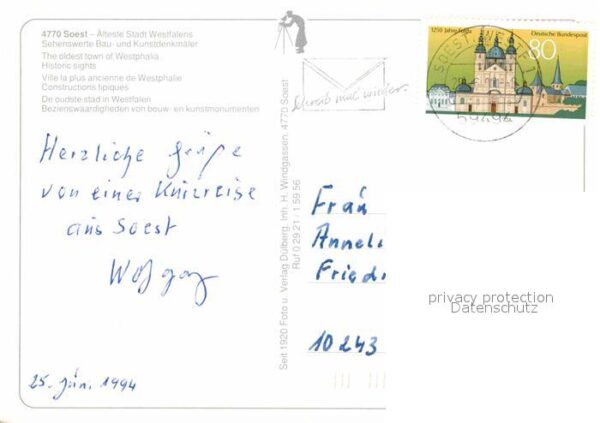 4770 Soest – Älteste Stadt Westfalens
Sehenswerte Bau- und Kunstdenkmäler
The oldest town of Westphalia
Historic sights
Ville la plus ancienne de Westphalie
Constructions tipiques
De oudste stad in Westfalen
Bezienswaardigheden van bouw- en kunstmonumenten
Schreib mal wieder.
1250 Jahre Fulda
Deutsche Bundespost
80
SOEST, WESTF
59494
Herzliche Grüße
von einer Kurzreise
aus Soest
Wolfgang
25. Jun. 1994
Seit 1920 Foto u. Verlag Dülberg, Inh. H. Windgassen, 4770 Soest
Ruf 0 29 21 / 1 59 56
Frau
Annel
Fried
10 243
privacy protection
Datenschutz